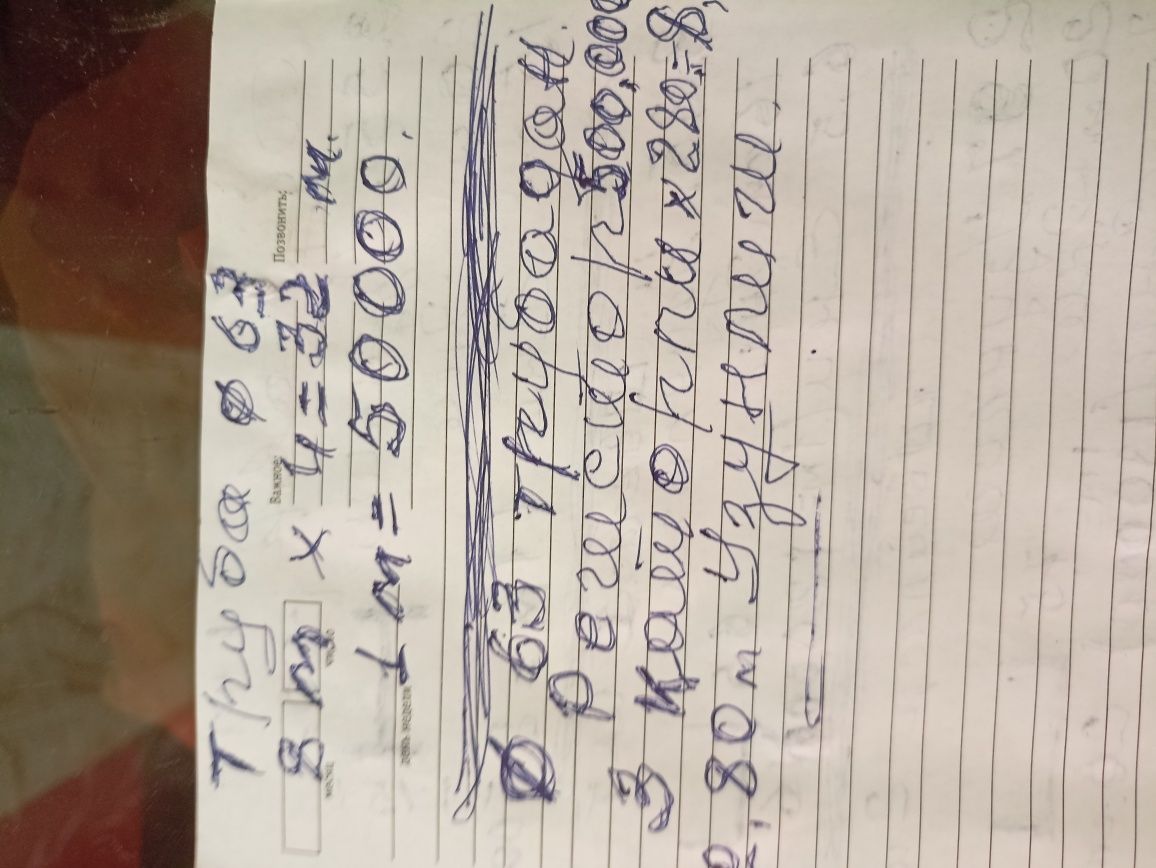 Труба ф 63
Важное:
Позвонить:
8 м х 4 = 32 м.
месяц
число
1 м = 50000.
день недели
Ф 63 трубадан.
Регистор 500,000
3 қайорпи х 280 = 8,
2,80 м узунлиги.